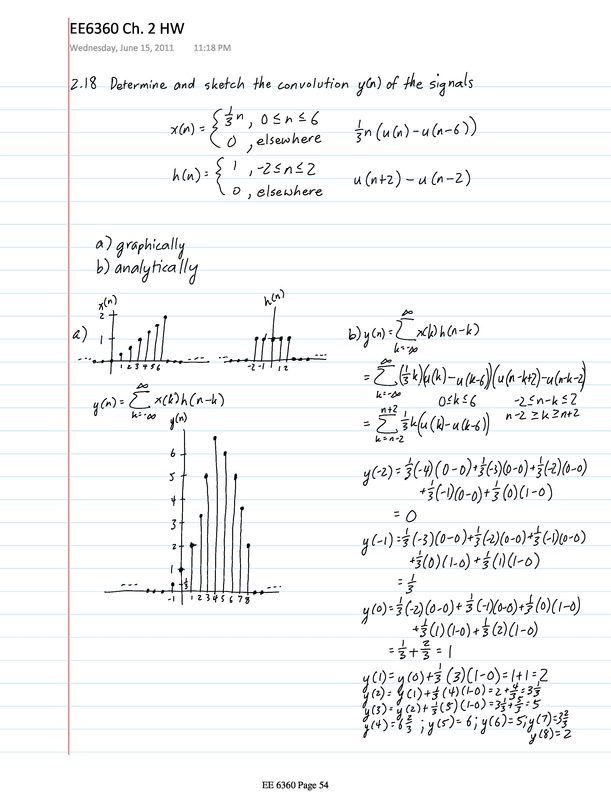 EE6360 Ch. 2 HW
Wednesday, June 15, 2011 11:18 PM
2.18 Determine and sketch the convolution y(n) of the signals
x(n) = { 1/3 n, 0 ≤ n ≤ 6
0, elsewhere
1/3 n (u(n) - u(n-6))
h(n) = { 1, -2 ≤ n ≤ 2
0, elsewhere
u(n+2) - u(n-2)
a) graphically
b) analytically
a)
x(n)
2
1
1 2 3 4 5 6
h(n)
-2 -1 1 2
y(n) = ∑_{k=-∞}^{∞} x(k) h(n-k)
y(n)
6
5
4
3
2
1
1/3
-1 1 2 3 4 5 6 7 8
b) y(n) = ∑_{k=-∞}^{∞} x(k) h(n-k)
= ∑_{k=-∞}^{∞} (1/3 k)(u(k) - u(k-6))(u(n-k+2) - u(n-k-2)
0 ≤ k ≤ 6 -2 ≤ n-k ≤ 2
= ∑_{k=n-2}^{n+2} 1/3 k (u(k) - u(k-6)) n-2 ≥ k ≥ n+2
y(-2) = 1/3(-4)(0-0) + 1/3(-3)(0-0) + 1/3(-2)(0-0)
+ 1/3(-1)(0-0) + 1/3(0)(1-0)
= 0
y(-1) = 1/3(-3)(0-0) + 1/3(-2)(0-0) + 1/3(-1)(0-0)
+ 1/3(0)(1-0) + 1/3(1)(1-0)
= 1/3
y(0) = 1/3(-2)(0-0) + 1/3(-1)(0-0) + 1/3(0)(1-0)
+ 1/3(1)(1-0) + 1/3(2)(1-0)
= 1/3 + 2/3 = 1
y(1) = y(0) + 1/3(3)(1-0) = 1+1 = 2
y(2) = y(1) + 1/3(4)(1-0) = 2 + 4/3 = 3 1/3
y(3) = y(2) + 1/3(5)(1-0) = 3 1/3 + 5/3 = 5
y(4) = 6 2/3 ; y(5) = 6 ; y(6) = 5 ; y(7) = 3 2/3
y(8) = 2
EE 6360 Page 54